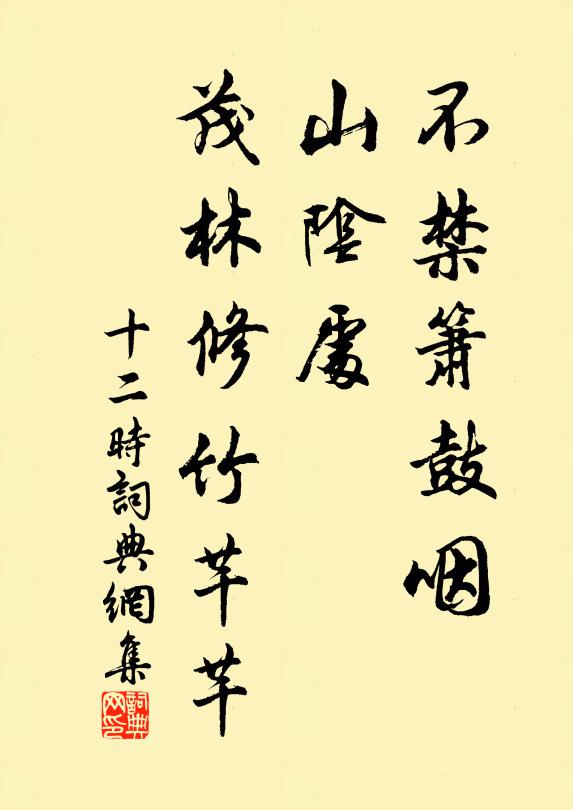 不禁簫鼓咽
山陰處
茂林修竹芊芊
十二時詞典網集
詞典網印